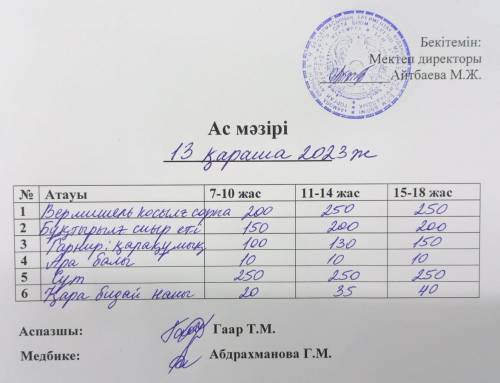 Бекітемін:
Мектеп директоры
Айтбаева М.Ж.
Ас мәзірі
13 қараша 2023ж
№ Атауы 7-10 жас 11-14 жас 15-18 жас
1 Вермишель қосылғ сорпа 200 250 250
2 Бұқтырылғ сиыр еті 150 200 200
3 Гарнир: қарақұмық 100 130 150
4 Ара балы 10 10 10
5 Сүт 250 250 250
6 Қара бидай наны 20 35 40
Аспазшы: Гаар Т.М.
Медбике: Абдрахманова Г.М.